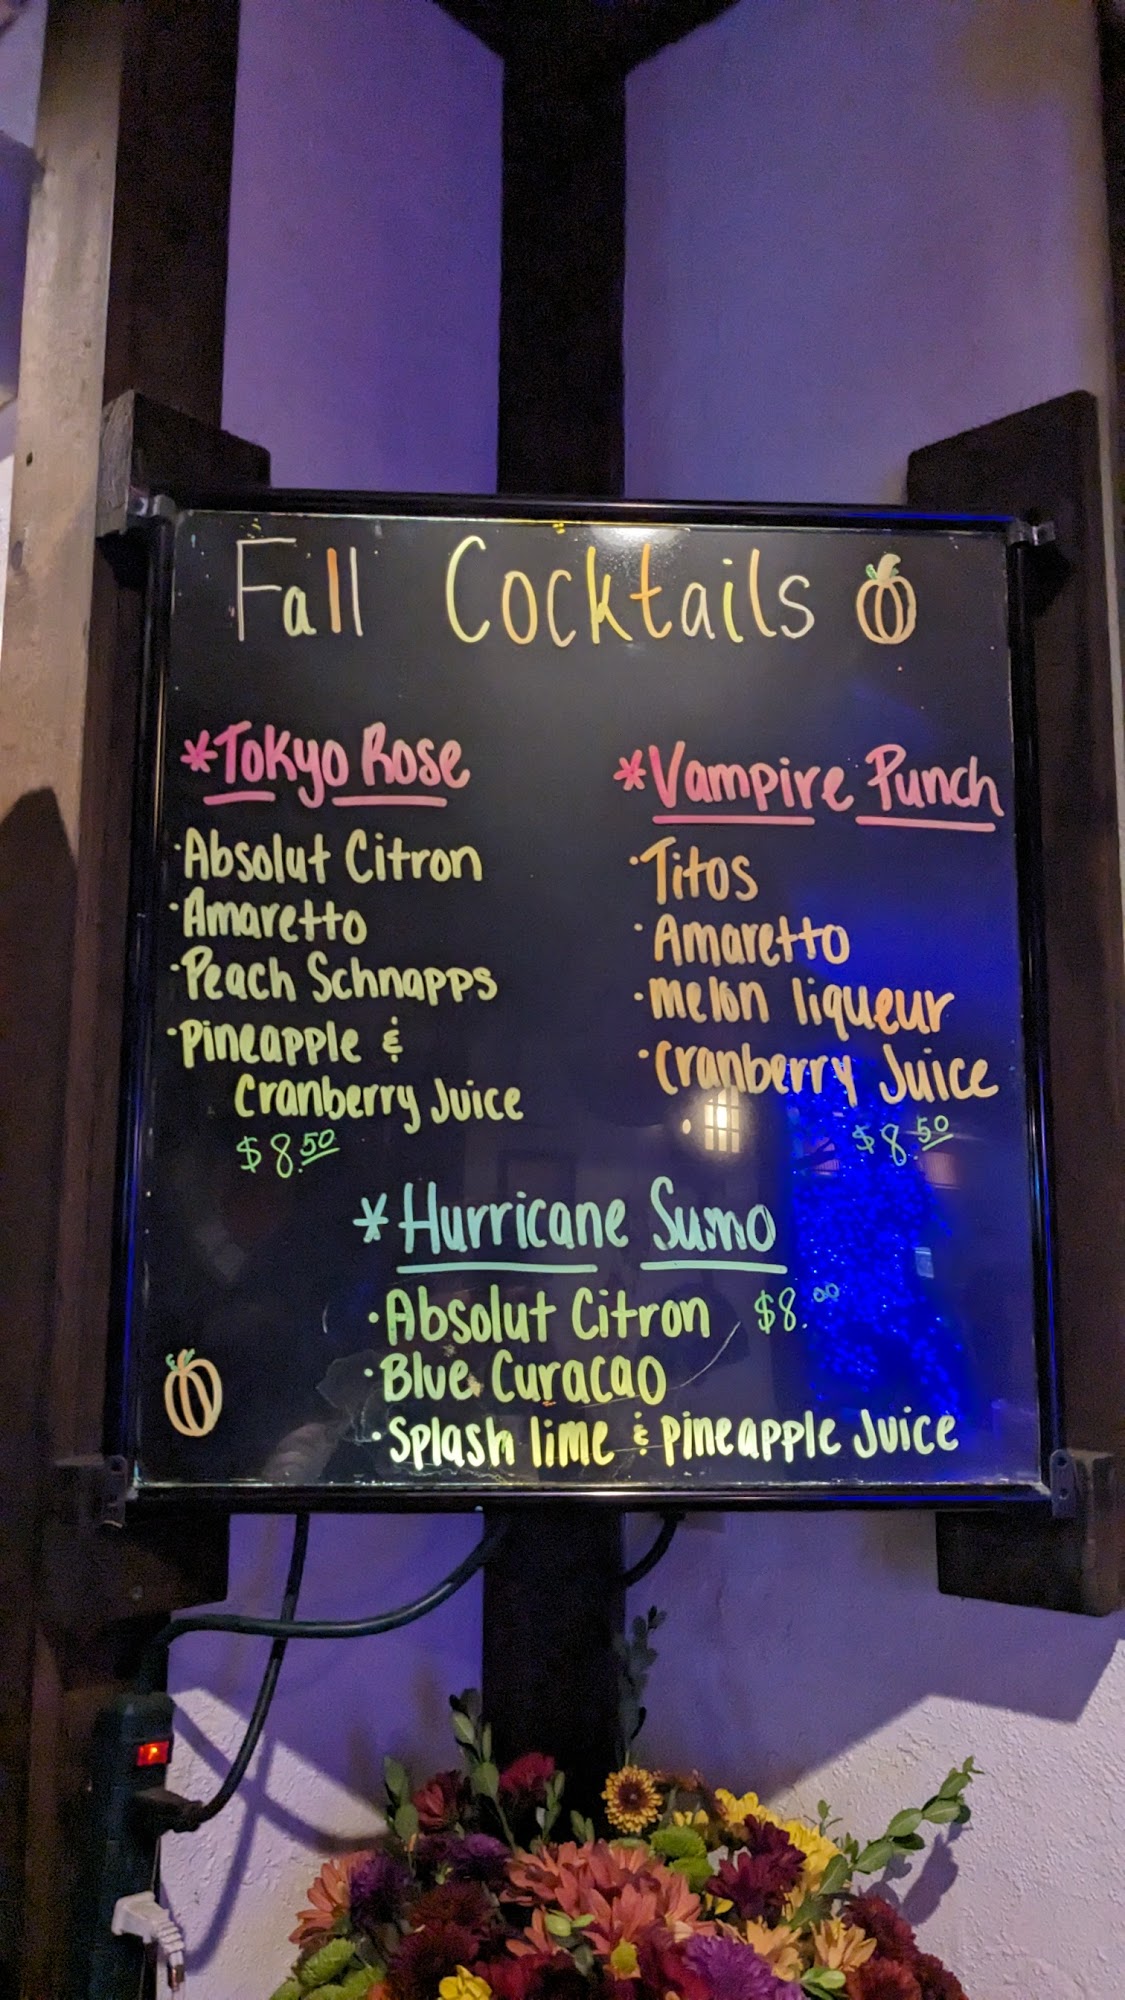 Fall Cocktails
*Tokyo Rose
·Absolut Citron
·Amaretto
·Peach Schnapps
·Pineapple &
Cranberry Juice
$8.50
*Vampire Punch
·Titos
·Amaretto
·melon liqueur
·Cranberry Juice
$8.50
*Hurricane Sumo
·Absolut Citron $8.00
·Blue Curacao
·Splash lime & pineapple Juice